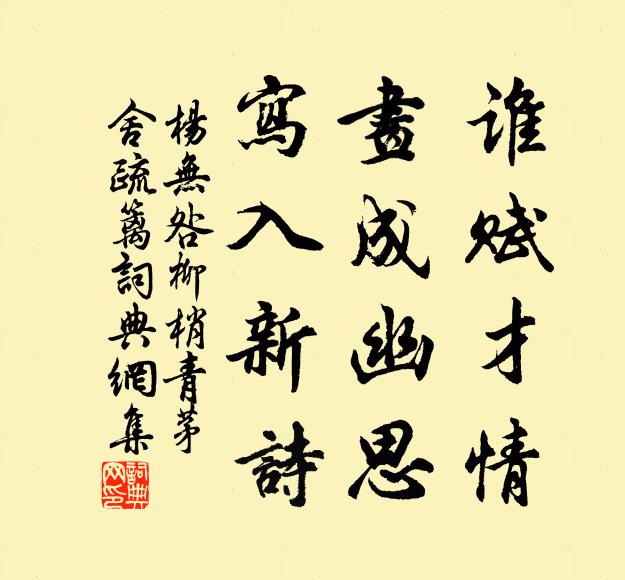 誰賦才情
畫成幽思
寫入新詩
楊無咎柳梢青茅
舍疏籬詞典網集
詞典网印